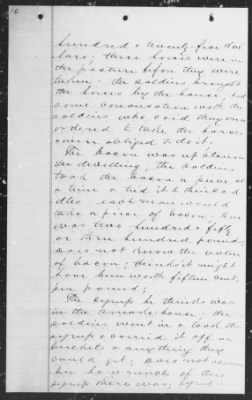 hundred & twenty-five dol
lars; these horses were in
the pasture before they were
taken. the soldiers brought
the horses by the house, had
some conversation with the
soldiers who said they were
ordered to take the horses
were obliged to do it.
The bacon was up stairs
in dwelling; the soldiers
took the bacon a piece at
a time & tied it to their sad
dles. each man would
take a piece of bacon. there
was two hundred & fifty
or three hundred pounds;
does not know the value
of bacon; thinks it might
have been worth fifteen cents
per pound;
The syrup he thinks was
in the smoke-house. the
soldiers went in & took the
syrup & carried it off in
buckets & anything they
could get; does not remem
ber how much of this
syrup there was;